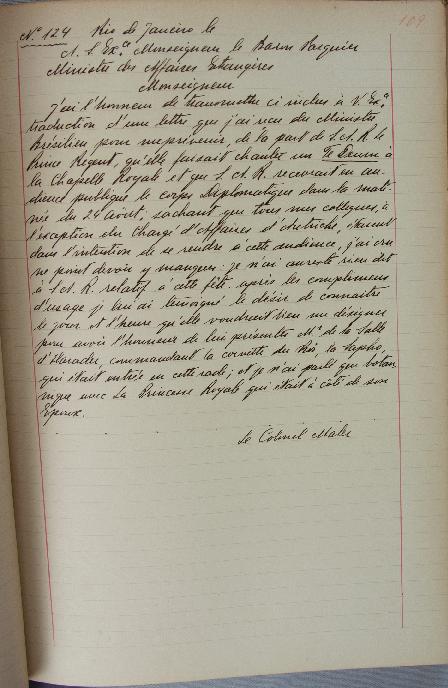 109
N° 124 Rio de Janeiro le
A. S. Ex.ce Monseigneur le Baron Pasquier
Ministre des Affaires Etrangères
Monseigneur
J'ai l'honneur de transmettre ci inclus à V. Ex.ce
traduction d'une lettre que j'ai reçu du Ministre
Brésilien pour me prévenir, de la part de S.A.R. le
Prince Regent, qu'elle faisait chanter un Te Deum à
la Chapelle Royale et que S.A.R. recevrait en au-
dience publique le corps diplomatique dans la mati-
née du 24 Août; sachant que tous mes collègues, à
l'exception du Chargé d'Affaires d'Autriche, étaient
dans l'intention de se rendre à cette audience, j'ai cru
ne point devoir y manquer: je n'ai au reste rien dit
à S.A.R. relatif à cette fête. après les complimens
d'usage je lui ai temoigné le désir de connaitre
le jour et l'heure qu'elle voudrait bien me désigner
pour avoir l'honneur de lui présenter Mr. de la Salle
d'Harader, commandant la corvette du Roi, la
qui était entrée en cette rade; et je n'ai parlé que botan
nique avec La Princesse Royale qui était à côté de son
Epoux.
Le Colonel Maler